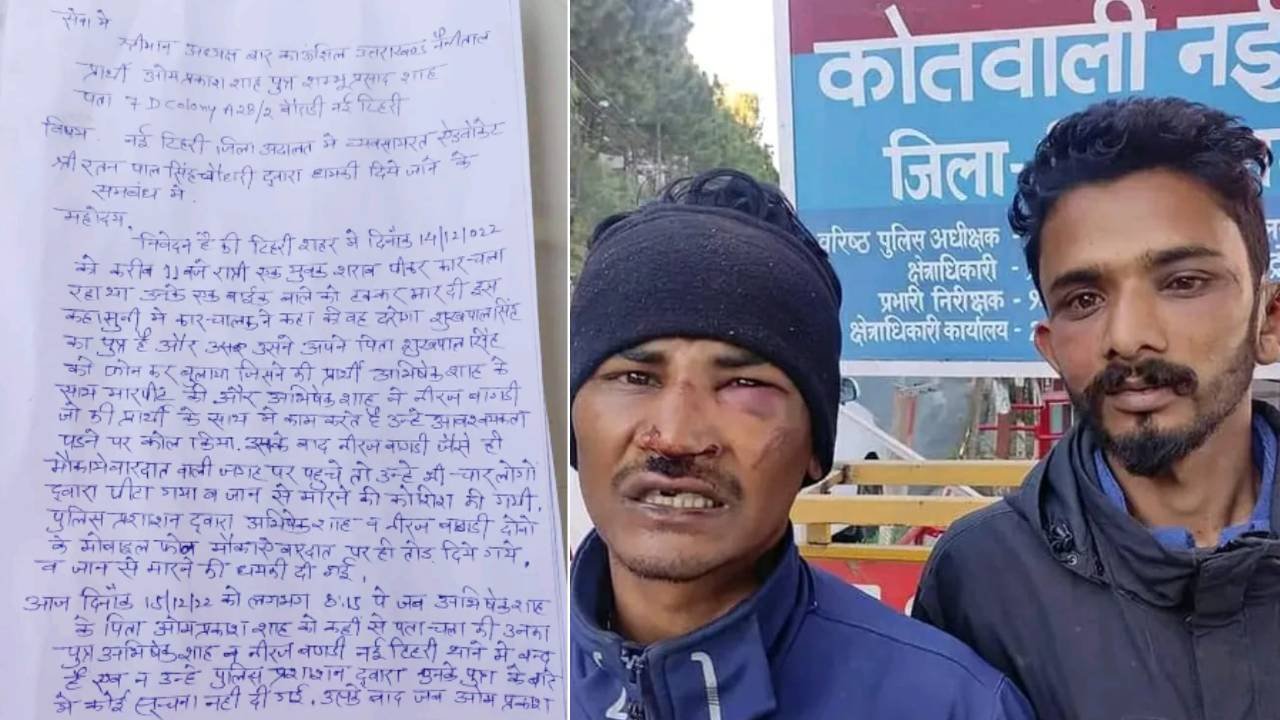 सेवा मे
श्रीमान अध्यक्ष बार काऊंशिल उत्तराखण्ड नैनीताल
प्रार्थी ओमप्रकाश शाह पुत्र शम्भू प्रसाद शाह
पता 7 D Colony A 28/2 बौराडी नई टिहरी
विषय. नई टिहरी जिला अदालत मे व्यवसायरत ऐडवोकेट
श्री रतन पाल सिंह चौहारी द्वारा धमकी दिये जाने के
सम्बंध मे.
महोदय,
निवेदन है की टिहरी शहर मे दिनाँक 14/12/022
को करीब 11 बजे रात्री एक युवक शराब पीकर कार चला
रहा था उनके एक बाईक वाले को टक्कर मार दी इस
कहासुनी मे कार चालक ने कहा की वह दरोगा सुखपाल सिंह
का पुत्र है और उसके उसने अपने पिता सुखपाल सिंह
को फोन कर बुलाया जिसने की प्रार्थी अभिषेक शाह के
साथ मारपीट की और अभिषेक शाह ने नीरज बागडी
जो की प्रार्थी के साथ मे काम करते है उन्हे आवश्यकता
पडने पर कौल किया. उसके बाद नीरज बागडी जैसे ही
मौकाये वारदात वाली जगह पर पहुचे तो उन्हे भी चार लोगो
द्वारा पीटा गया व जान से मारने की कोशिश की गयी.
पुलिस प्रशाशन द्वारा अभिषेक शाह व नीरज बागडी दोनो
के मोबाइल फोन मौकाऐ वारदात पर ही तोड दिये गये.
व जान से मारने की धमकी दी गई.
आज दिनाँक 15/12/22 को लगभग 8:15 पे जब अभिषेक शाह
के पिता ओमप्रकाश शाह को कही से पता चला की उनका
पुत्र अभिषेक शाह व नीरज बागडी नई टिहरी थाने मे बन्द
है एव न उन्हे पुलिस प्रशाशन द्वारा उनके पुत्र के बारे
मे कोई सूचना नही दी गई. उसके बाद जब ओम प्रकाश
कोतवाली नई
जिला-
वरिष्ठ पुलिस अधीक्षक -
क्षेत्राधिकारी -
प्रभारी निरीक्षक - 9
क्षेत्राधिकारी कार्यालय -